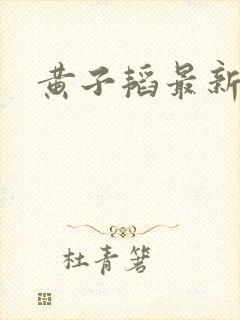 黄子韬最新
杜青箬